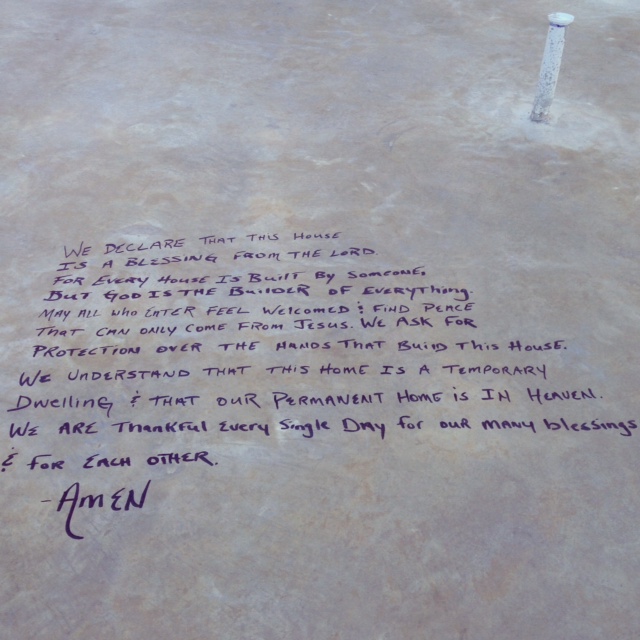 WE DECLARE THAT THIS HOUSE
IS A BLESSING FROM THE LORD.
FOR EVERY HOUSE IS BUILT BY SOMEONE,
BUT GOD IS THE BUILDER OF EVERYTHING.
MAY ALL WHO ENTER FEEL WELCOMED & FIND PEACE
THAT CAN ONLY COME FROM JESUS. WE ASK FOR
PROTECTION OVER THE HANDS THAT BUILD THIS HOUSE.
WE UNDERSTAND THAT THIS HOME IS A TEMPORARY
DWELLING & THAT OUR PERMANENT HOME IS IN HEAVEN.
WE ARE THANKFUL EVERY SINGLE DAY FOR OUR MANY BLESSINGS
& FOR EACH OTHER.
-AMEN